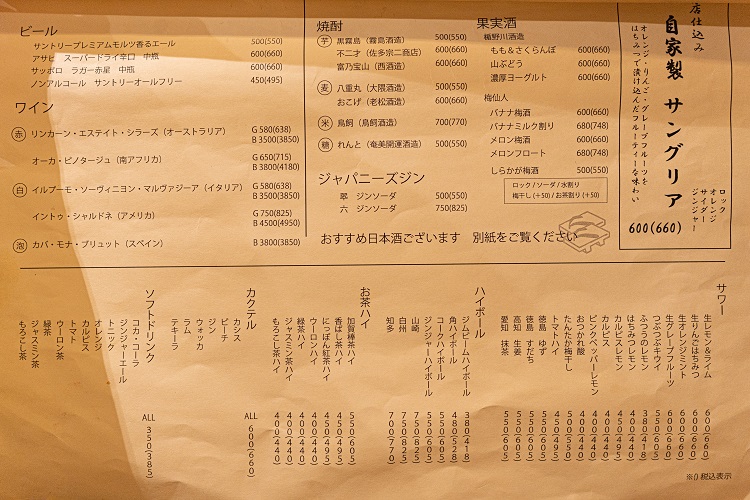 ビール
サントリープレミアムモルツ香るエール 500(550)
アサヒ スーパードライ辛口 中瓶 600(660)
サッポロ ラガー赤星 中瓶 600(660)
ノンアルコール サントリーオールフリー 450(495)
ワイン
赤 リンカーン・エステイト・シラーズ（オーストラリア） G 580(638)
B 3500(3850)
オーカ・ピノタージュ（南アフリカ） G 650(715)
B 3800(4180)
白 イルプーモ・ソーヴィニョン・マルヴァジーア（イタリア） G 580(638)
B 3500(3850)
イントゥ・シャルドネ（アメリカ） G 750(825)
B 4500(4950)
泡 カバ・モナ・ブリュット（スペイン） B 3800(3850)
焼酎
芋 黒霧島（霧島酒造） 500(550)
不二才（佐多宗二商店） 600(660)
富乃宝山（西酒造） 600(660)
麦 八重丸（大隈酒造） 500(550)
おこげ（老松酒造） 600(660)
米 鳥飼（鳥飼酒造） 700(770)
糖 れんと（奄美開運酒造） 500(550)
ジャパニーズジン
翠 ジンソーダ 500(550)
六 ジンソーダ 750(825)
おすすめ日本酒ございます 別紙をご覧ください
果実酒
楯野川酒造
もも＆さくらんぼ 600(660)
山ぶどう 600(660)
濃厚ヨーグルト 600(660)
梅仙人
バナナ梅酒 600(660)
バナナミルク割り 680(748)
メロン梅酒 600(660)
メロンフロート 680(748)
しらかが梅酒 500(550)
ロック / ソーダ / 水割り
梅干し (+50) / お茶割り (+50)
店仕込み
自家製 サングリア
オレンジ・りんご・グレープフルーツを
はちみつで漬け込んだフルーティーな味わい
ロック
オレンジ
サイダー
ジンジャー
600(660)
サワー
生レモン＆ライム 600(660)
生りんごはちみつ 600(660)
生オレンジミント 600(660)
生グレープフルーツ 600(660)
つぶつぶキウイ 550(605)
ふつうのレモン 380(418)
はちみつレモン 400(440)
カルピスレモン 450(495)
カルピス 400(440)
ピンクペッパーレモン 400(440)
おつかれ酸 400(440)
たんたか梅干し 500(550)
トマトハイ 450(495)
徳島 ゆず 550(605)
徳島 すだち 550(605)
高知 生姜 550(605)
愛知 抹茶 550(605)
ハイボール
ジムビームハイボール 380(418)
角ハイボール 480(528)
コークハイボール 550(605)
ジンジャーハイボール 550(605)
山崎 750(825)
白州 750(825)
知多 700(770)
お茶ハイ
加賀棒茶ハイ 550(605)
香ばし茶ハイ 450(495)
にっぽん紅茶ハイ 450(495)
ウーロンハイ 400(440)
緑茶ハイ 400(440)
ジャスミン茶ハイ 400(440)
もろこし茶ハイ 400(440)
カクテル
ALL 600(660)
カシス
ピーチ
ジン
ウォッカ
ラム
テキーラ
ソフトドリンク
ALL 350(385)
コカ・コーラ
ジンジャーエール
トニック
オレンジ
カルピス
トマト
ウーロン茶
緑茶
ジャスミン茶
もろこし茶
※()税込表示